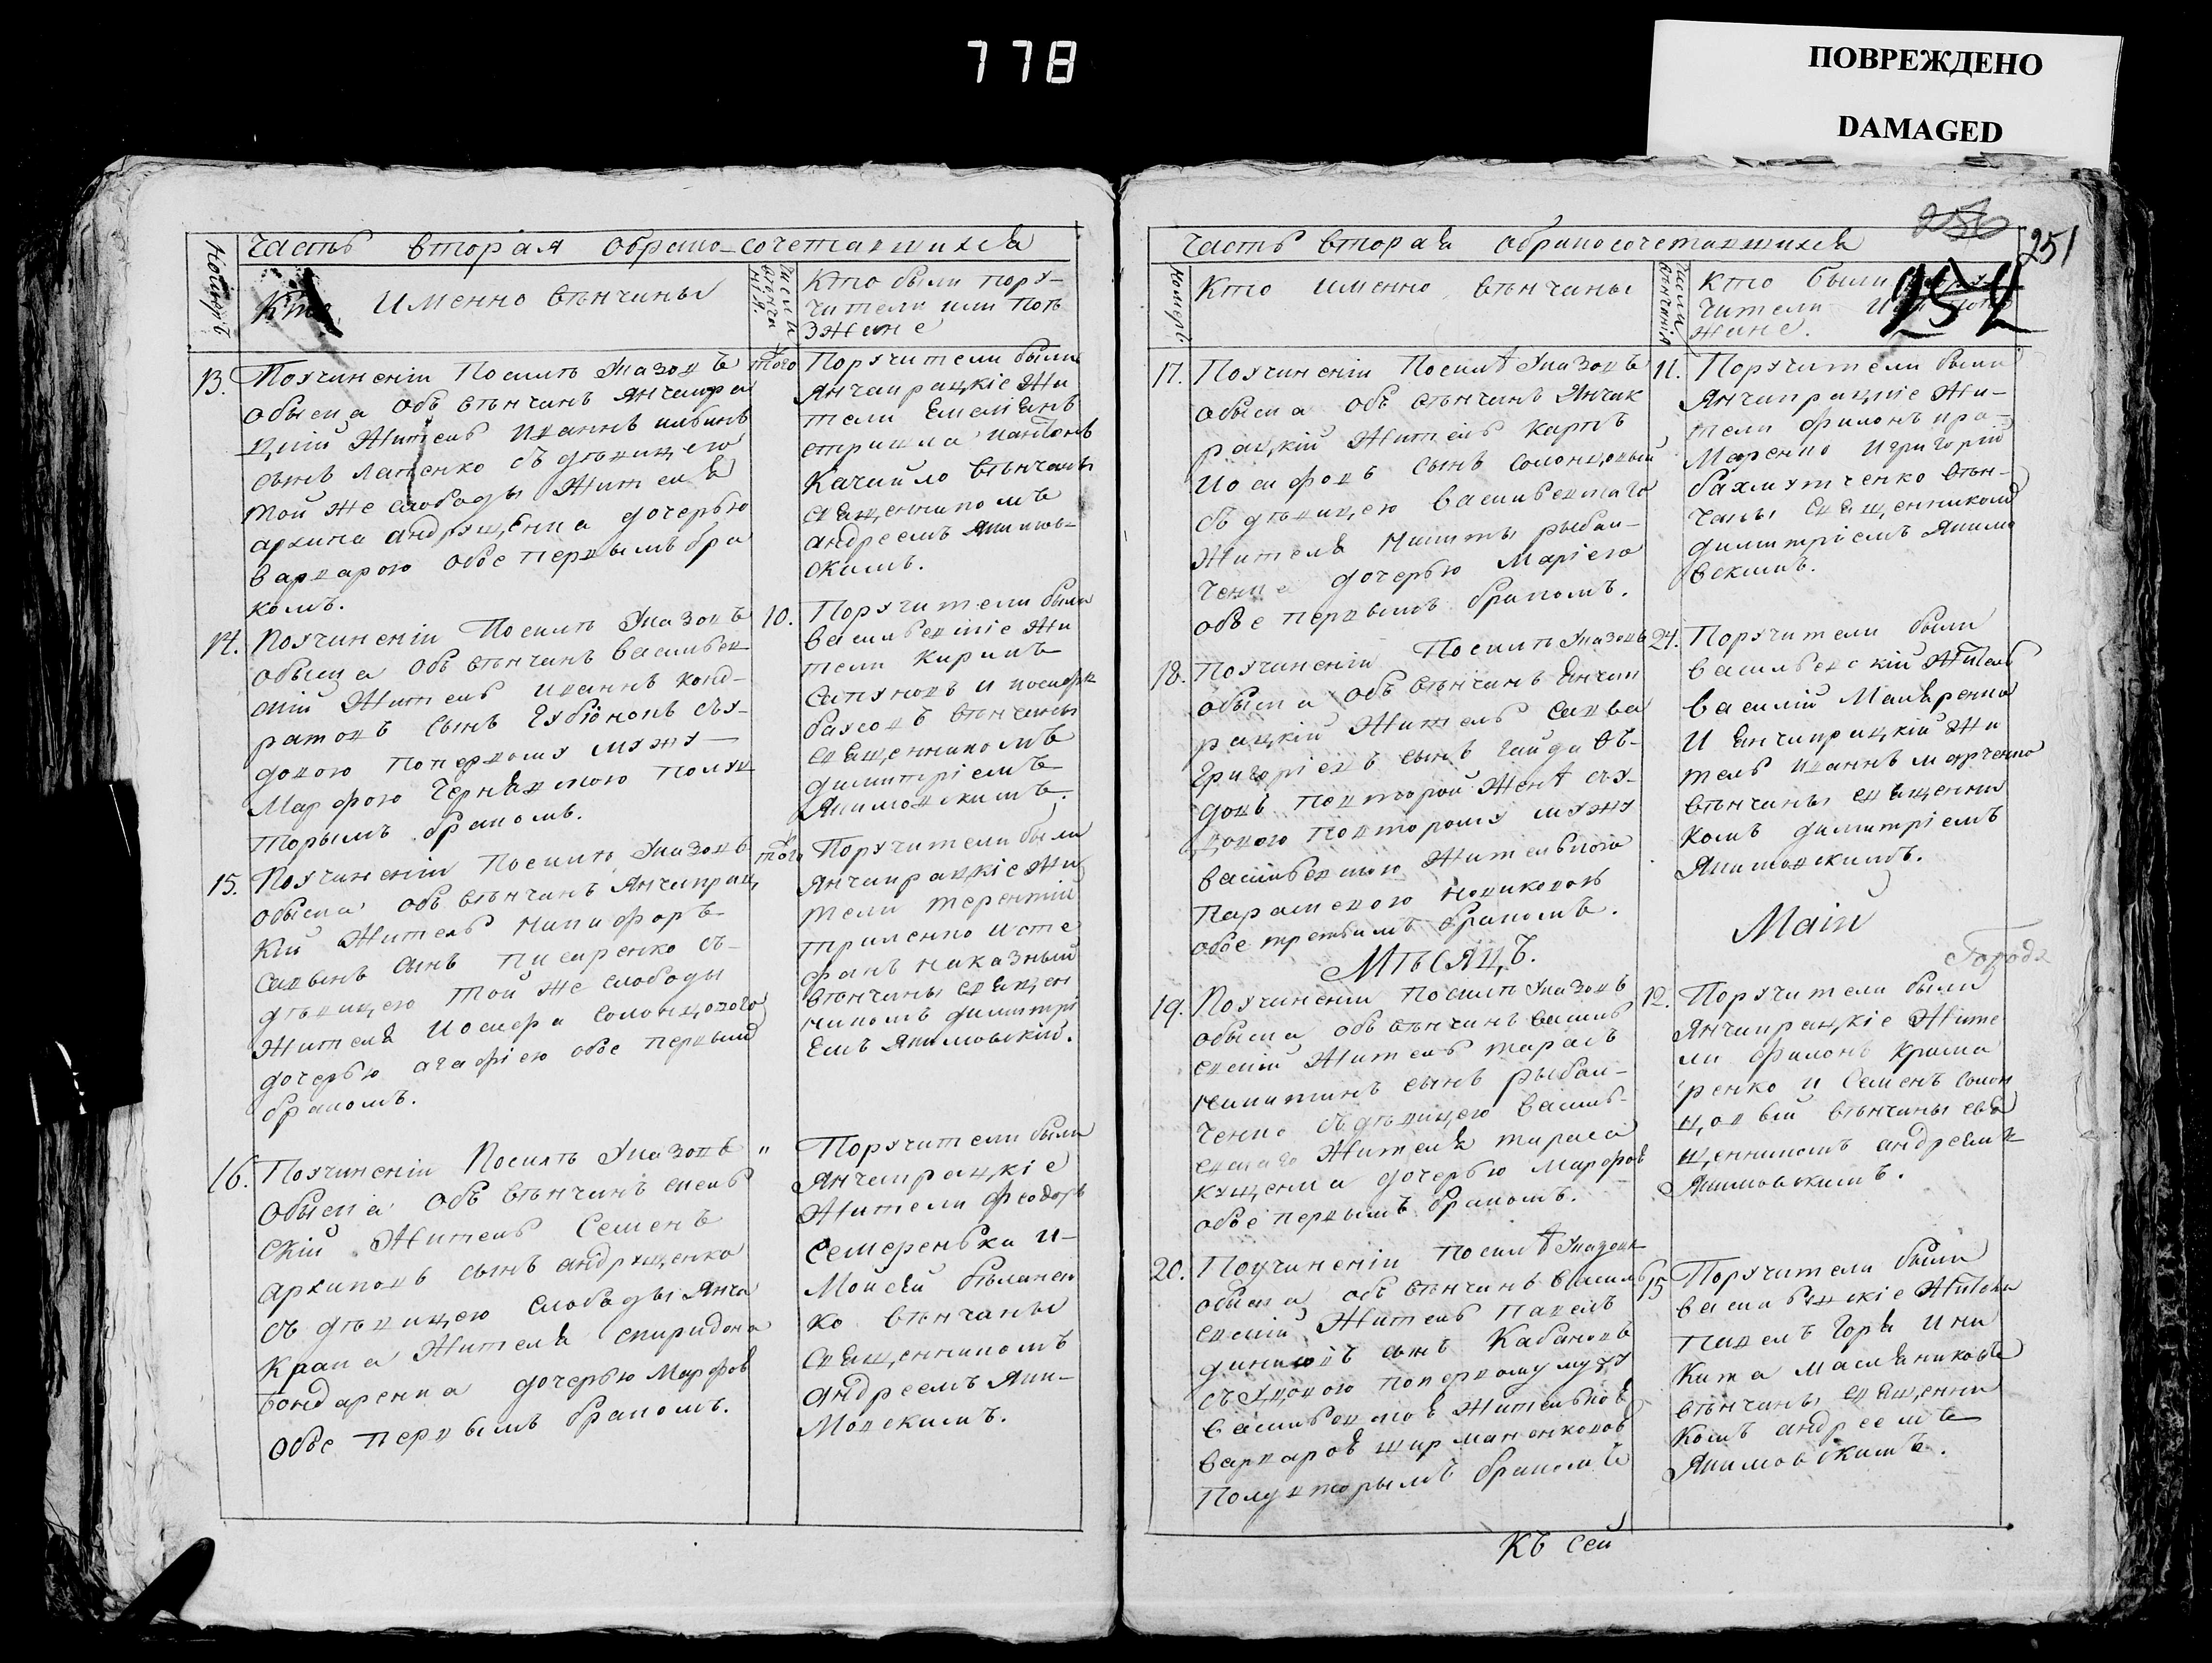 778
ПОВРЕЖДЕНО
DAMAGED
Часть вторая обрако-сочетавшихся
Номеръ
Кто именно вѣнчаны
Числа вѣнчанія.
Кто были пору-
чители или поѣ
зжане
13. По учиненіи после указовъ
обыска обвѣнчанъ Янчакра
цкій житель Иваннъ
сынъ Лапенко съ дѣвицею
той же слободы жителя
Архипа Андрущенка дочерью
Варварою обое первымъ бра
комъ.
того
Поручители были
Янчакрацкіе жи
тели Емеліянъ
Качайло вѣнчаны
священникомъ
Андреемъ Якимов-
скимъ.
14. По учиненіи после указовъ
обыска обвѣнчанъ Васильев
скій житель Иваннъ Конд-
ратовъ сынъ съ в-
довою по первому мужу
Марфою Чернявскою полув
торымъ бракомъ.
10.
Поручители были
Васильевскіе жи
тели Кирилъ
Сапуновъ и Иосифъ
вѣнчаны
священникомъ
Димитріемъ
Якимовскимъ.
15. По учиненіи после указовъ
обыска обвѣнчанъ Янчакрац
кій житель Никифоръ
Савинъ сынъ Писаренко съ
дѣвицею той же слободы
жителя Иосифа Солонцового
дочерью Агафіею обое первымъ
бракомъ.
того
Поручители были
Янчакрацкіе жи
тели Терентій
и Сте
фанъ Наказный
вѣнчаны священ
никомъ Димитрі
емъ Якимовскій.
16. По учиненіи после указовъ
обыска обвѣнчанъ
скій житель Семенъ
Архиповъ сынъ Андрущенко
съ дѣвицею слободы Янча
крака жителя Спиридона
Бондаренка дочерью Марфою
обое первымъ бракомъ.
"
Поручители были
Янчакрацкіе
жители Феодоръ
Семеренька и
Моисей Бѣланен
ко вѣнчаны
священникомъ
Андреемъ Яки-
мовскимъ.
251
252
Часть вторая обракосочетавшихся
Номеръ
Кто именно вѣнчаны
Числа вѣнчанія
Кто были
чители
жане.
17. По учиненіи после указовъ
обыска обвѣнчанъ Янчак
рацкій житель Карпъ
Иосифовъ сынъ Солонцовый
съ дѣвицею Васильевскаго
жителя Никиты Рыбал-
ченка дочерью Маріею
обое первымъ бракомъ.
11.
Поручители были
Янчакрацкіе жи-
тели Филонъ Кра-
маренко и Григорій
Бахмутченко вѣн-
чаны священникомъ
Димитріемъ Якимо
вскимъ.
18. По учиненіи после указовъ
обыска обвѣнчанъ Янчак
рацкій житель Савва
Григоріевъ сынъ Гайда въ-
довъ по второй женѣ съ в-
довою по второму мужу
Васильевскою жителькою
Параскевою Новиковою
обое третьимъ бракомъ.
24.
Поручители были
Васильевскій житель
Василій Маляренко
и Янчакрацкій жи
тель Иваннъ Марченко
вѣнчаны священни
комъ Димитріемъ
Якимовскимъ.
Мѣсяцъ.
Маій
19. По учиненіи после указовъ
обыска обвѣнчанъ Василь
евскій житель Тарасъ
Никитинъ сынъ Рыбал-
ченко съ дѣвицею Василь-
евскаго жителя Тараса
Кущенка дочерью Марфою
обое первымъ бракомъ.
12.
Поручители были
Янчакрацкіе жите
ли Филонъ Крама
ренко и Семенъ Солон
цовый вѣнчаны свя
щенникомъ Андреемъ
Якимовскимъ.
20. По учиненіи после указовъ
обыска обвѣнчанъ Василь
евскій житель Павелъ
Даниловъ сынъ Кабановъ
съ вдовою по первому мужу
Васильевскою жителькою
Варварою
полувторымъ бракомъ
15
Поручители были
Васильевскіе жители
Павелъ Горя и Ни
кита Масляниковъ
вѣнчаны священни
комъ Андреемъ
Якимовскимъ.
Къ сей